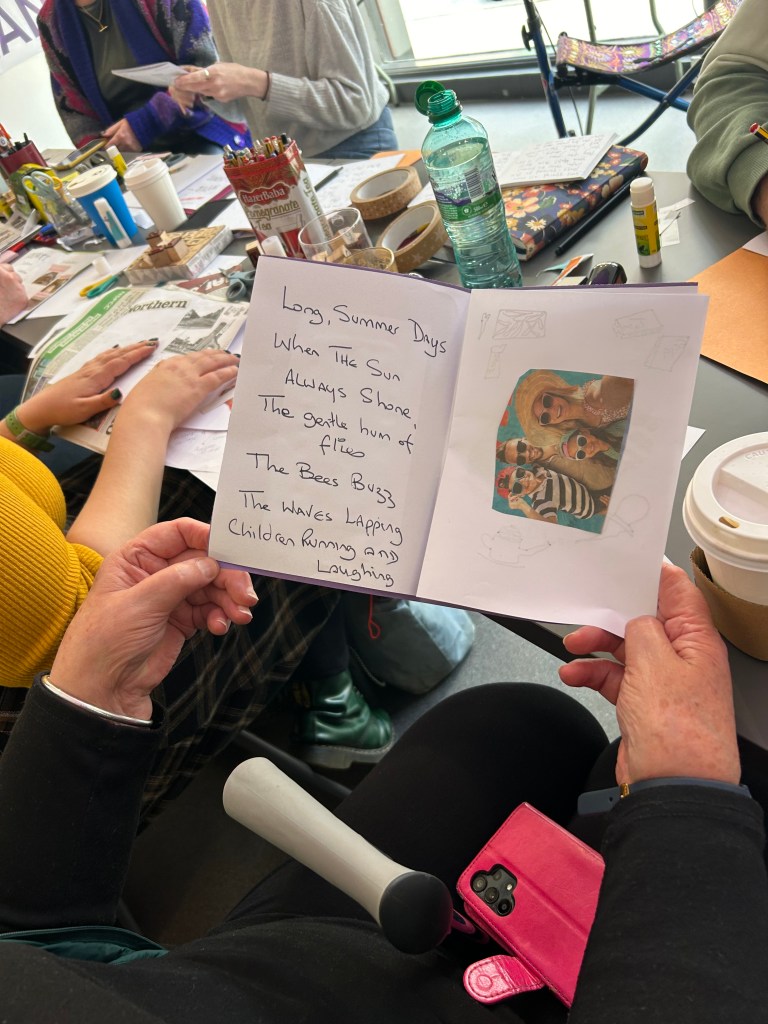 Long, Summer Days
When THE Sun
ALWAYS Shone,
The gentle hum of
flies
The Bees Buzz
The WAVES LAPPING
Children Running AND
Laughing
Northern
Pomegranate
Tea